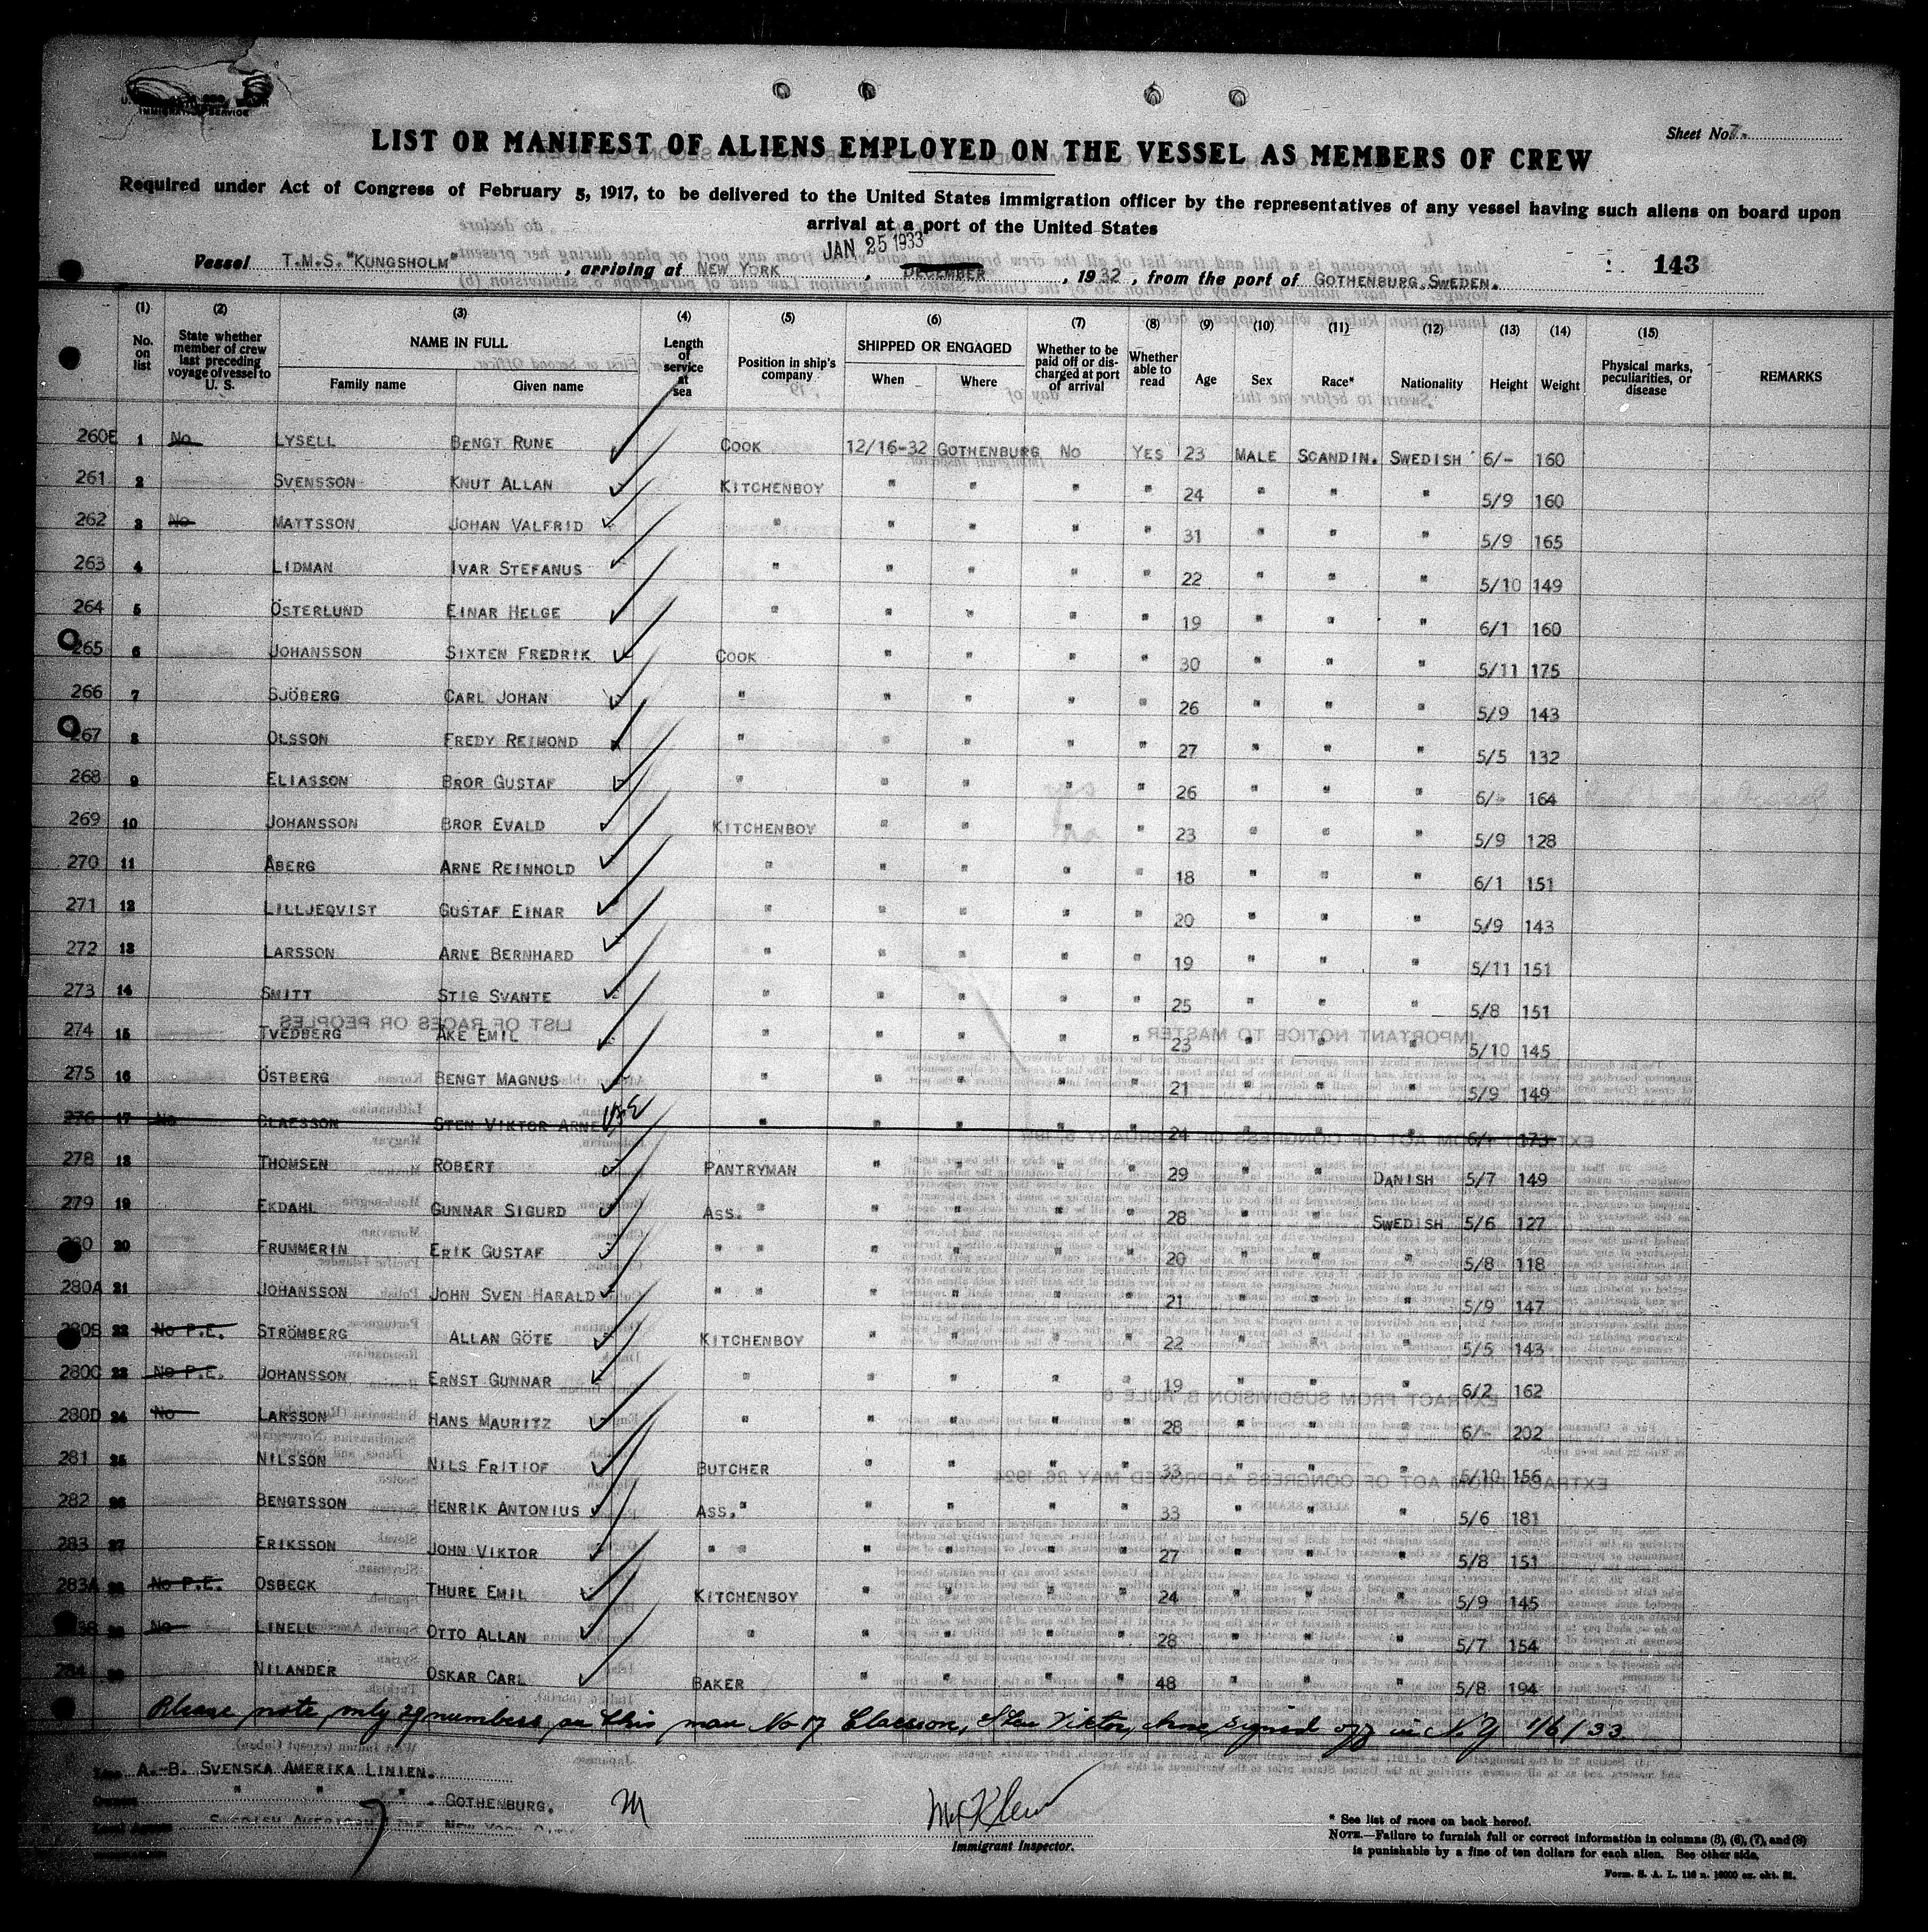 IMMIGRATION SERVICE
Sheet No. 7-
LIST OR MANIFEST OF ALIENS EMPLOYED ON THE VESSEL AS MEMBERS OF CREW
Required under Act of Congress of February 5, 1917, to be delivered to the United States immigration officer by the representatives of any vessel having such aliens on board upon
arrival at a port of the United States
JAN 25 1933
Vessel T.M.S. "KUNGSHOLM", arriving at NEW YORK, DECEMBER, 1932, from the port of GOTHENBURG, SWEDEN. 143
(1) (2) (3) (4) (5) (6) (7) (8) (9) (10) (11) (12) (13) (14) (15)
No. on list State whether member of crew last preceding voyage of vessel to U. S. NAME IN FULL Family name Given name Length of service at sea Position in ship's company SHIPPED OR ENGAGED When Where Whether to be paid off or discharged at port of arrival Whether able to read Age Sex Race* Nationality Height Weight Physical marks, peculiarities, or disease REMARKS
260E 1 No LYSELL BENGT RUNE COOK 12/16-32 GOTHENBURG No YES 23 MALE SCANDIN. SWEDISH 6/- 160
261 2 SVENSSON KNUT ALLAN KITCHENBOY " " " " 24 " " " 5/9 160
262 3 No MATTSSON JOHAN VALFRID " " " " " 31 " " " 5/9 165
263 4 LIDMAN IVAR STEFANUS " " " " " 22 " " " 5/10 149
264 5 ÖSTERLUND EINAR HELGE " " " " " 19 " " " 6/1 160
265 6 JOHANSSON SIXTEN FREDRIK COOK " " " " 30 " " " 5/11 175
266 7 SJÖBERG CARL JOHAN " " " " " 26 " " " 5/9 143
267 8 OLSSON FREDY REIMOND " " " " " 27 " " " 5/5 132
268 9 ELIASSON BROR GUSTAF " " " " " 26 " " " 6/- 164
269 10 JOHANSSON BROR EVALD KITCHENBOY " " " " 23 " " " 5/9 128
270 11 ÅBERG ARNE REINHOLD " " " " " 18 " " " 6/1 151
271 12 LILLJEQVIST GUSTAF EINAR " " " " " 20 " " " 5/9 143
272 13 LARSSON ARNE BERNHARD " " " " " 19 " " " 5/11 151
273 14 SMITT STIG SVANTE " " " " " 25 " " " 5/8 151
274 15 TVEDBERG ÅKE EMIL " " " " " 23 " " " 5/10 145
275 16 ÖSTBERG BENGT MAGNUS " " " " " 21 " " " 5/9 149
276 17 No CLAESSON STEN VIKTOR ARNE " " " " " 24 " " " 6/1 173
278 18 THOMSEN ROBERT PANTRYMAN " " " " 29 " " DANISH 5/7 149
279 19 EKDAHL GUNNAR SIGURD ASS. " " " " " 28 " " SWEDISH 5/6 127
280 20 FRUMMERIN ERIK GUSTAF " " " " " " 20 " " " 5/8 118
280A 21 JOHANSSON JOHN SVEN HARALD " " " " " " 21 " " " 5/9 147
280B 22 No P.E. STRÖMBERG ALLAN GÖTE KITCHENBOY " " " " 22 " " " 5/5 143
280C 23 No P.E. JOHANSSON ERNST GUNNAR " " " " " 19 " " " 6/2 162
280D 24 No LARSSON HANS MAURITZ " " " " " 28 " " " 6/- 202
281 25 NILSSON NILS FRITIOF BUTCHER " " " " 33 " " " 5/10 156
282 26 BENGTSSON HENRIK ANTONIUS ASS. " " " " " 33 " " " 5/6 181
283 27 ERIKSSON JOHN VIKTOR " " " " " " 27 " " " 5/8 151
283A 28 No P.E. OSBECK THURE EMIL KITCHENBOY " " " " 24 " " " 5/9 145
283B 29 No LINELL OTTO ALLAN " " " " " 28 " " " 5/7 154
284 30 NILANDER OSKAR CARL BAKER " " " " 48 " " " 5/8 194
Please note, only 29 numbers, as this man No 17 Claesson, Sten Viktor, Arne, signed off in N.Y. 1/6/33.
Line A.-B. SVENSKA AMERIKA LINIEN.
Owners " " " GOTHENBURG.
Local Agents SWEDISH AMERICAN LINE, NEW YORK CITY
Immigrant Inspector.
* See list of races on back hereof.
NOTE.—Failure to furnish full or correct information in columns (3), (6), (7), and (8)
is punishable by a fine of ten dollars for each alien. See other side.
Form. S. A. L. 116 n. 10000 ex. okt. 31.